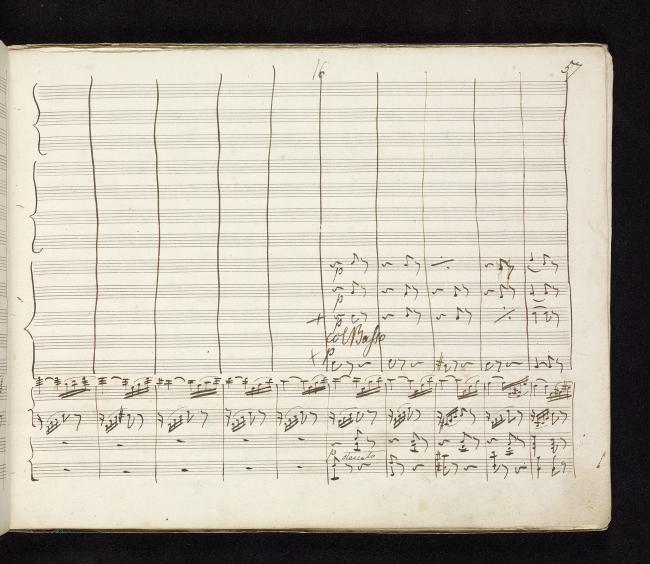 16
57
p
p
p
col Basso
p
p staccato